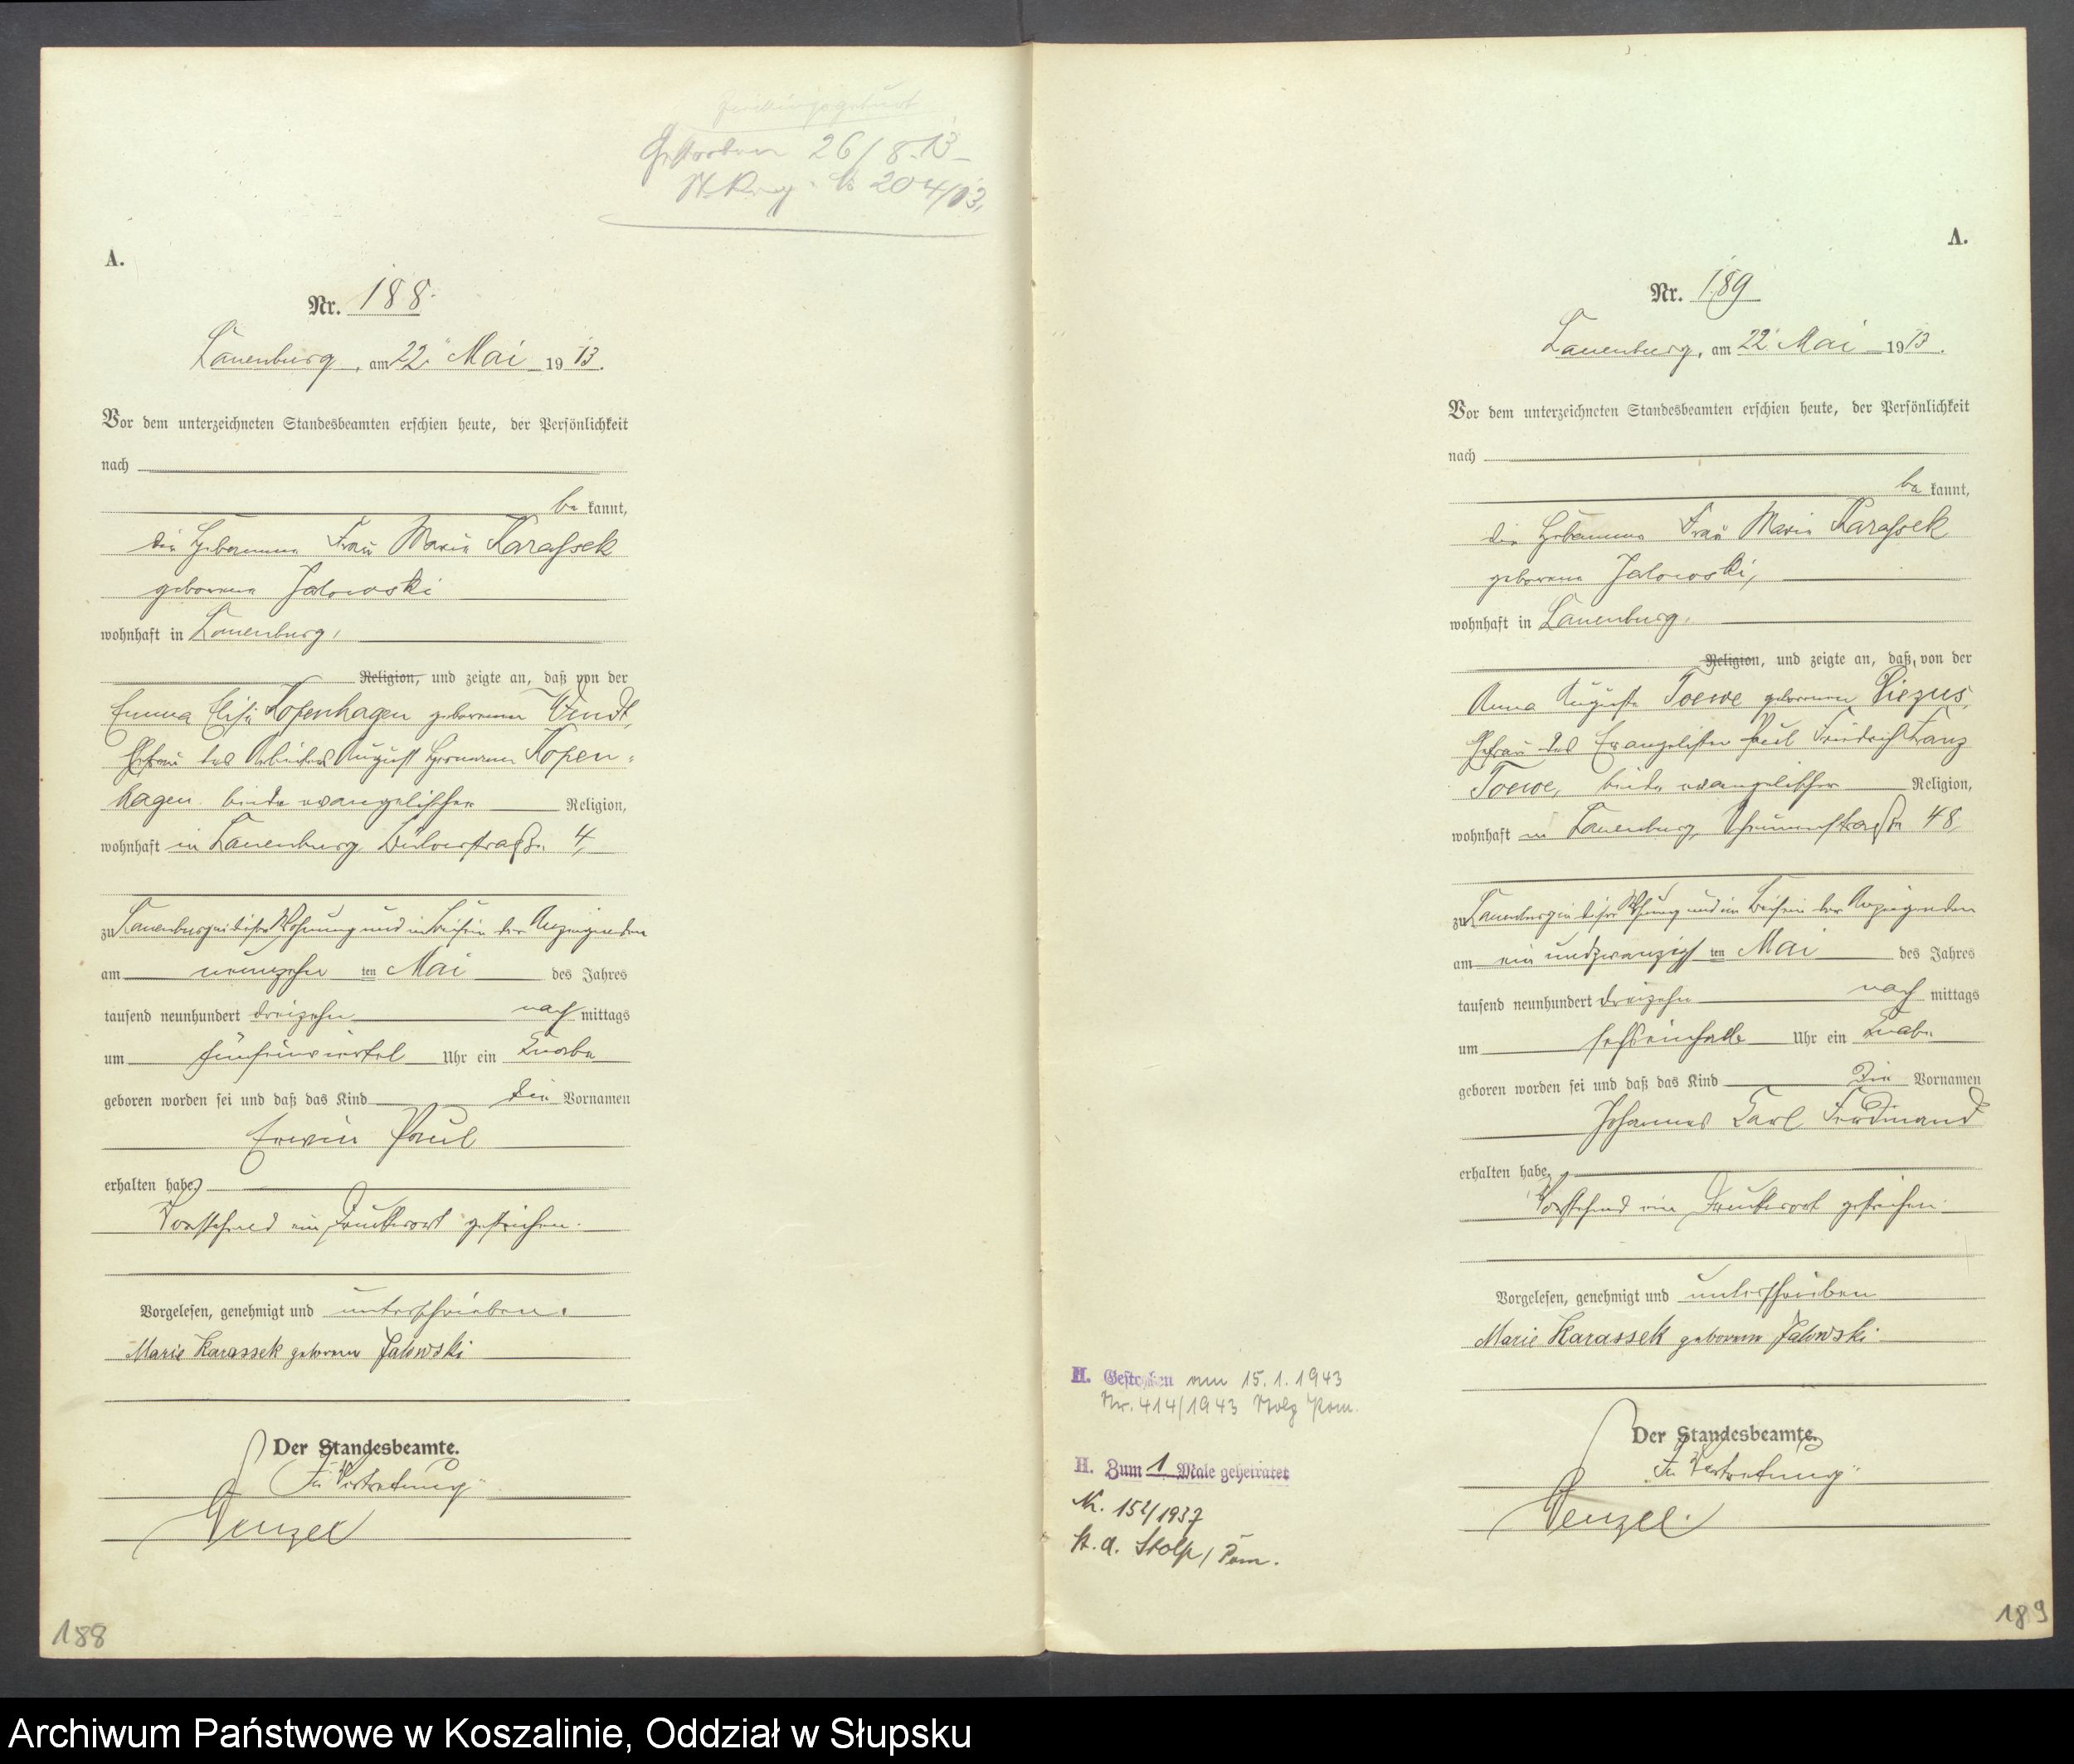 Gestorben 26/8.13
St. Reg. No 204/13.
A.
Nr. 188.
Lauenburg, am 22. Mai 1913.
Vor dem unterzeichneten Standesbeamten erschien heute, der Persönlichkeit
nach
bekannt,
die Hebamme Frau Marie Karassek
geborene Jalowski
wohnhaft in Lauenburg,
Religion, und zeigte an, daß von der
Emma Elise Kopenhagen geborenen Wendt,
Ehefrau des Arbeiters August Hermann Kopen-
hagen beide evangelischer Religion,
wohnhaft in Lauenburg Bülowstraße 4,
zu Lauenburg in dieser Wohnung und in Beisein der Anzeigenden
am neunzehnten Mai des Jahres
tausend neunhundert dreizehn nachmittags
um fünfeinviertel Uhr ein Knabe
geboren worden sei und daß das Kind die Vornamen
Erwin Paul
erhalten habe.
Vorstehend ein Druckwort gestrichen.
Vorgelesen, genehmigt und unterschrieben.
Marie Karassek geborene Jalowski
Der Standesbeamte.
In Vertretung
Wenzel
188
A.
Nr. 189
Lauenburg, am 22. Mai 1913.
Vor dem unterzeichneten Standesbeamten erschien heute, der Persönlichkeit
nach
bekannt,
die Hebamme Frau Marie Karassek
geborene Jalowski,
wohnhaft in Lauenburg,
Religion, und zeigte an, daß von der
Anna Auguste Toewe geborenen Ziezus,
Ehefrau des Evangelisten Paul Friedrich Franz
Toewe, beide evangelischer Religion,
wohnhaft in Lauenburg, 48,
zu Lauenburg in dieser Wohnung und in Beisein der Anzeigenden
am ein und zwanzigsten Mai des Jahres
tausend neunhundert dreizehn nachmittags
um sechseinhalb Uhr ein Knabe
geboren worden sei und daß das Kind die Vornamen
Johannes Karl Ferdinand
erhalten habe.
Vorstehend ein Druckwort gestrichen.
Vorgelesen, genehmigt und unterschrieben
Marie Karassek geborene Jalowski
Der Standesbeamte.
In Vertretung
Wenzel.
H. Gestorben am 15.1.1943
Nr. 414/1943 Stolp Pom.
H. Zum 1 Male geheiratet
Nr. 152/1937
St. A. Stolp / Pom.
189
Archiwum Państwowe w Koszalinie, Oddział w Słupsku